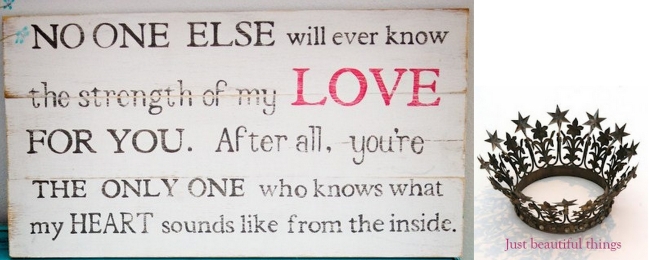 NO ONE ELSE will ever know
the strength of my LOVE
FOR YOU. After all, you're
THE ONLY ONE who knows what
my HEART sounds like from the inside.
Just beautiful things